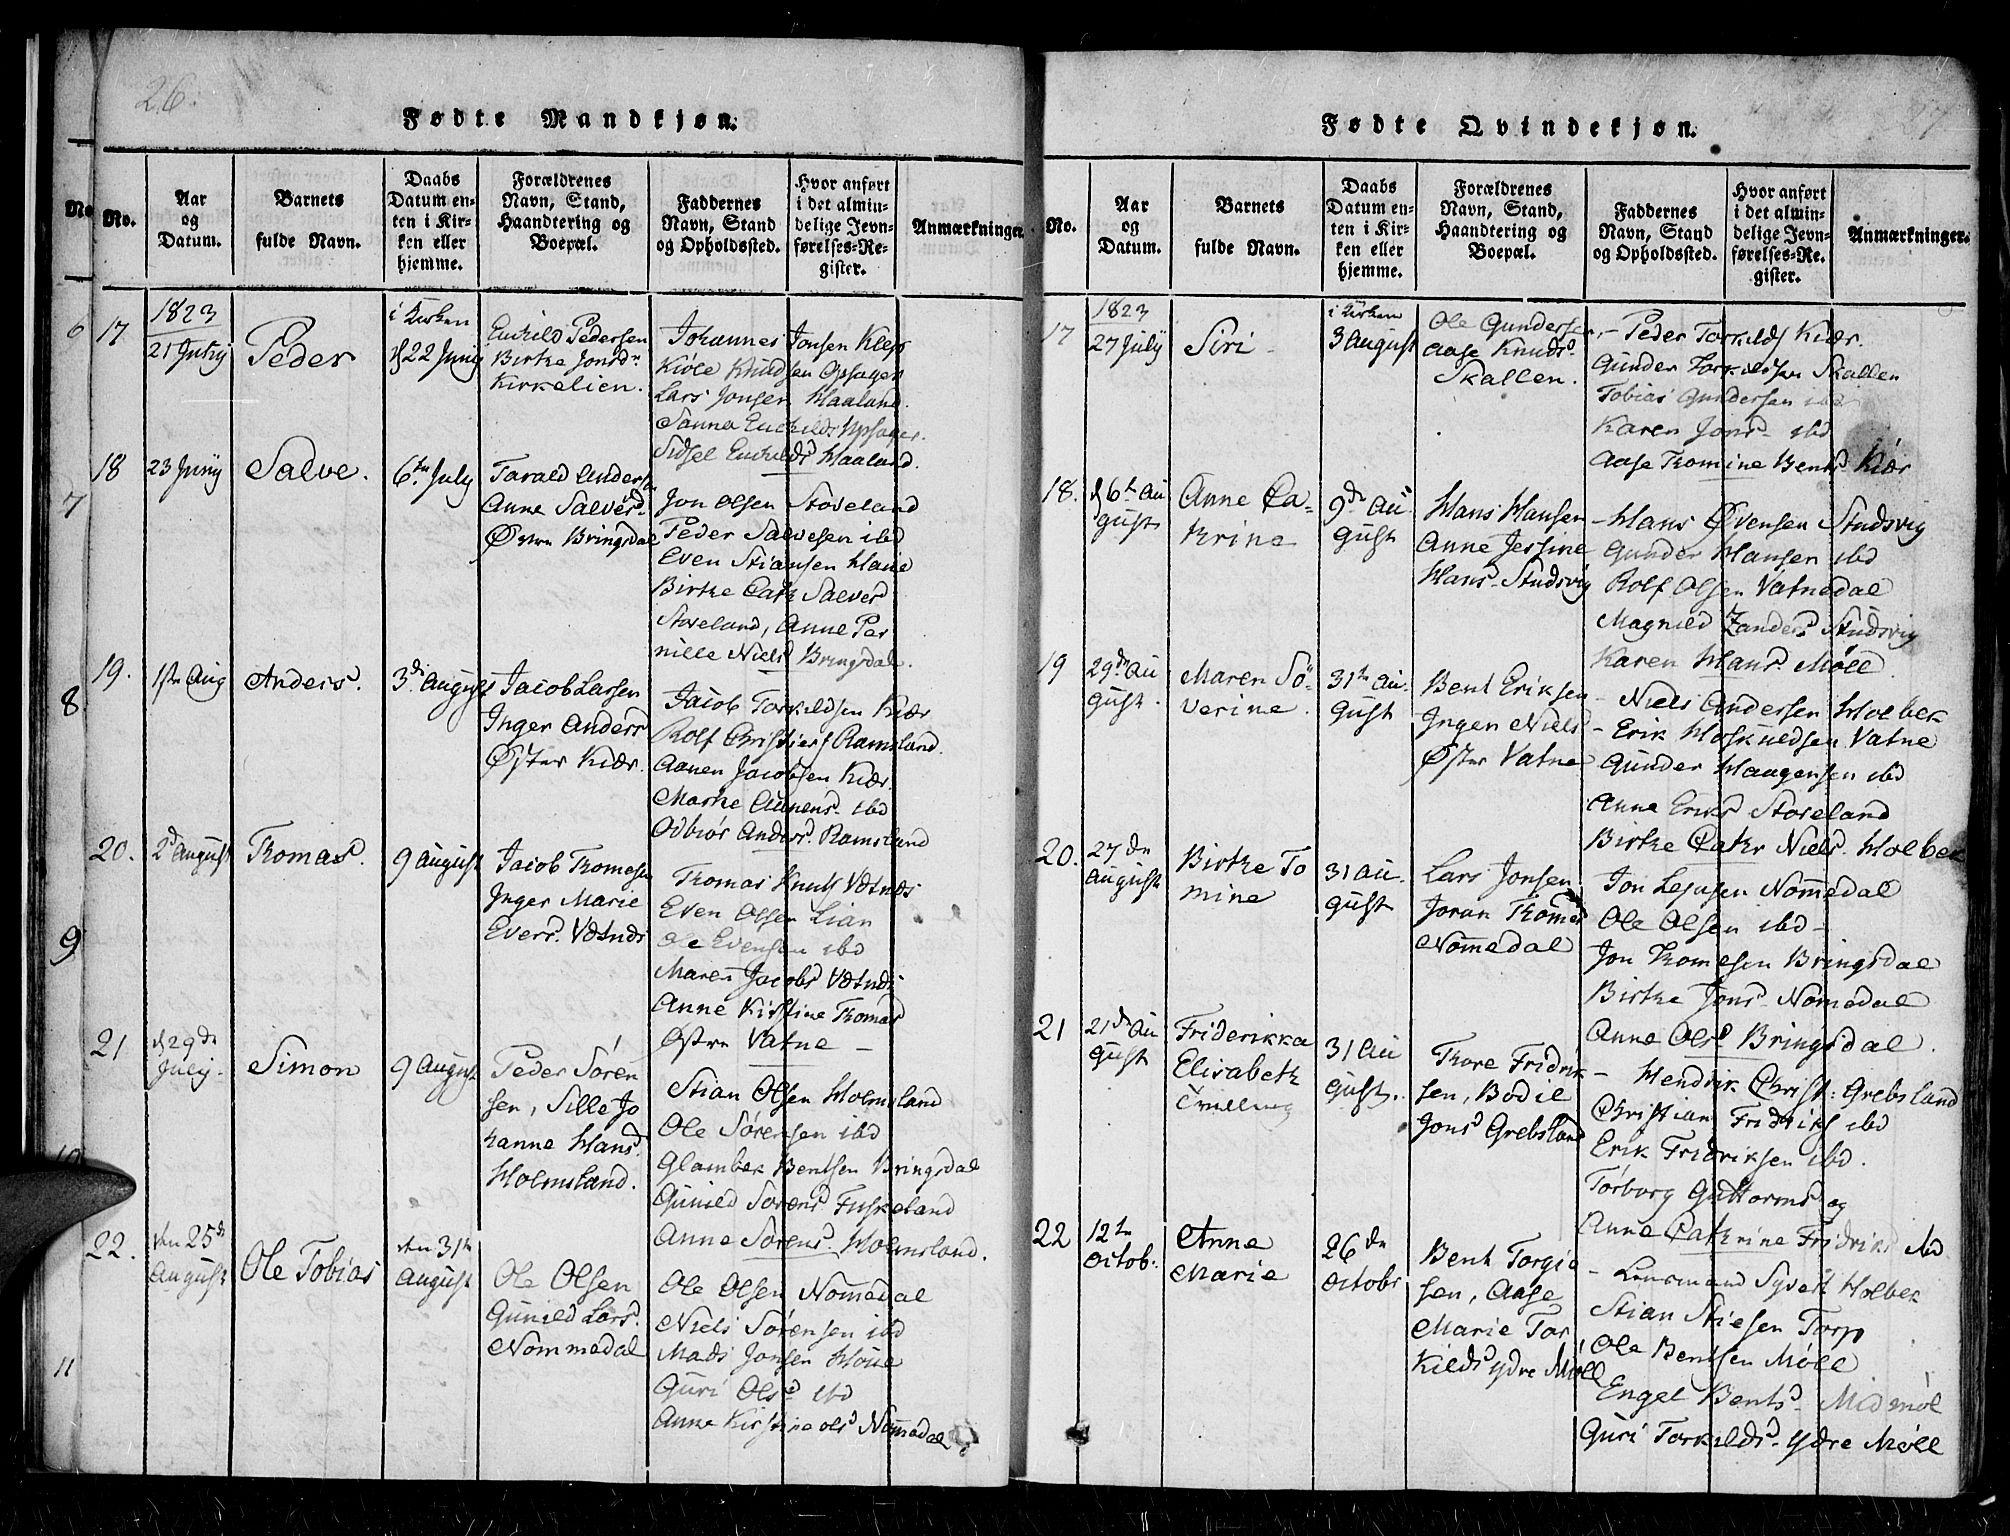 26.
Fødte Mandkjøn.
No.
Aar og Datum.
Barnets fulde Navn.
Daabs Datum enten i Kirken eller hjemme.
Forældrenes Navn, Stand, Haandtering og Boepæl.
Faddernes Navn, Stand og Opholdssted.
Hvor anført i det almindelige Jevnførelses-Register.
Anmærkninger
17
1823
21 Juny
Peder
i Kirken
d 22 Juny
Enchild Pedersen
Birthe Jonsdr
Kirkelien.
Johannes Jonsen Klep
Kiöle Knudsen Opsager
Lars Jonsen Haaland.
Sanna Enchilds Upsager.
Sidsel Enchilds Haaland.
18
23 Juny
Salve.
6te July
Tarald Anders
Anne Salvesd
Østre Bringsdal
Jon Olsen Stoveland
Peder Salvesen ibd
Even Stiansen
Birthe Cath Salvesd
Stoveland, Anne Per
nille Niels Bringsdal.
19.
1ste Aug
Anders.
3de August
Jacob Larsen
Inger Andersd
Øster Kiær.
Jacob Torkildsen Kiær
Rolf Christiens Ramsland.
Aanen Jacobsen Kiær.
Marthe Aanensd ibd
Odbiør Andersd Ramsland
20.
2d August
Thomas.
9 August
Jacob Thomesen
Inger Marie
Eversd. Vætnes
Thomas Knuts Vætnes
Even Olsen Lian
Ole Evensen ibd
Maren Jacobs Vætnes
Anne Kirstine Thomasd
Østre Vatne
21
d 29de
July.
Simon
9 August
Peder Sören
sen, Sille Jo
hanne Hansd.
Holmsland.
Stian Olsen Holmsland
Ole Sörensen ibd
Glambek Bentsen Bringsdal
Gunild Sörensd Fuskeland
Anne Sörensd. Holmsland.
22.
den 25de
August
Ole Tobias
den 31te
August
Ole Olsen
Gunild Larsd.
Nommedal
Ole Olsen Nomedal
Niels Sörensen ibd
Mads Jonsen
Guri Olsd ibd
Anne Kirstine Olsd Nomedal
Fødte Qvindekjøn.
No.
Aar og Datum.
Barnets fulde Navn.
Daabs Datum enten i Kirken eller hjemme.
Forældrenes Navn, Stand, Haandtering og Boepæl.
Faddernes Navn, Stand og Opholdssted.
Hvor anført i det almindelige Jevnførelses-Register.
Anmærkninger.
17
1823
27 July
Siri
i Kirken
3 August
Ole Gundersen
Aase Knudsd
Skallen.
- Peder Torkilds Kiær.
Gunder Torkildsen Skallen
Tobias Gundersen ibd
Karen Jonsd ibd
Aase Thomine Bentsd Kiær
18.
d 6te Au
gust
Anne Ca-
thrine
9de Au
gust
Hans Hansen
Anne Jessine
Hansd Studsvig
- Hans Øvensen Studsvig
Gunder Hansen ibd
Rolf Olsen Vatnedal
Magnild Zandersd Studsvig
Karen Hansd Möll.
19
29de Au
gust.
Maren Sö-
verine.
31te Au
gust
Bent Eriksen
Inger Niels
Øster Vatne
- Niels Andersen Holbek
- Erik Hoskuldsen Vatne
Gunder Haagensen ibd
Anne Eriks Stoveland
Birthe Cathr Nielsd. Holbek
20.
27de
August
Birthe To
mine
31 Au
gust
Lars Jonsen
Joran Thomesd
Nomedal
Jon Lejusen Nomedal
Ole Olsen ibd -
Jon Thomesen Bringsdal
Birthe Jonsd Nomedal
Anne Olsd Bringsdal.
21
21de Au
gust
Friderikka
Elisabeth
Tvilling
31 Au
gust.
Thore Fridrik
sen, Bodil
Jonsd Grebsland
- Hendrik Christ: Grebsland
Christian Fridriks ibd
Erik Fridriksen ibd.
Torborg Guttormsd og
Anne Cathrine Fridriksd ibd
22
12te
Octob.
Anne
Marie
26de
Octobr
Bent Torgie
sen, Aase
Marie Tor
Kildsd ydre Möll
- Lensmand Syvert Holbek
Stian Stiesen Torp
Ole Bentsen Möll
Engel Bentsd Midmöl
Guri Torkildsd ydre Möll
6
7
8
9
10
11